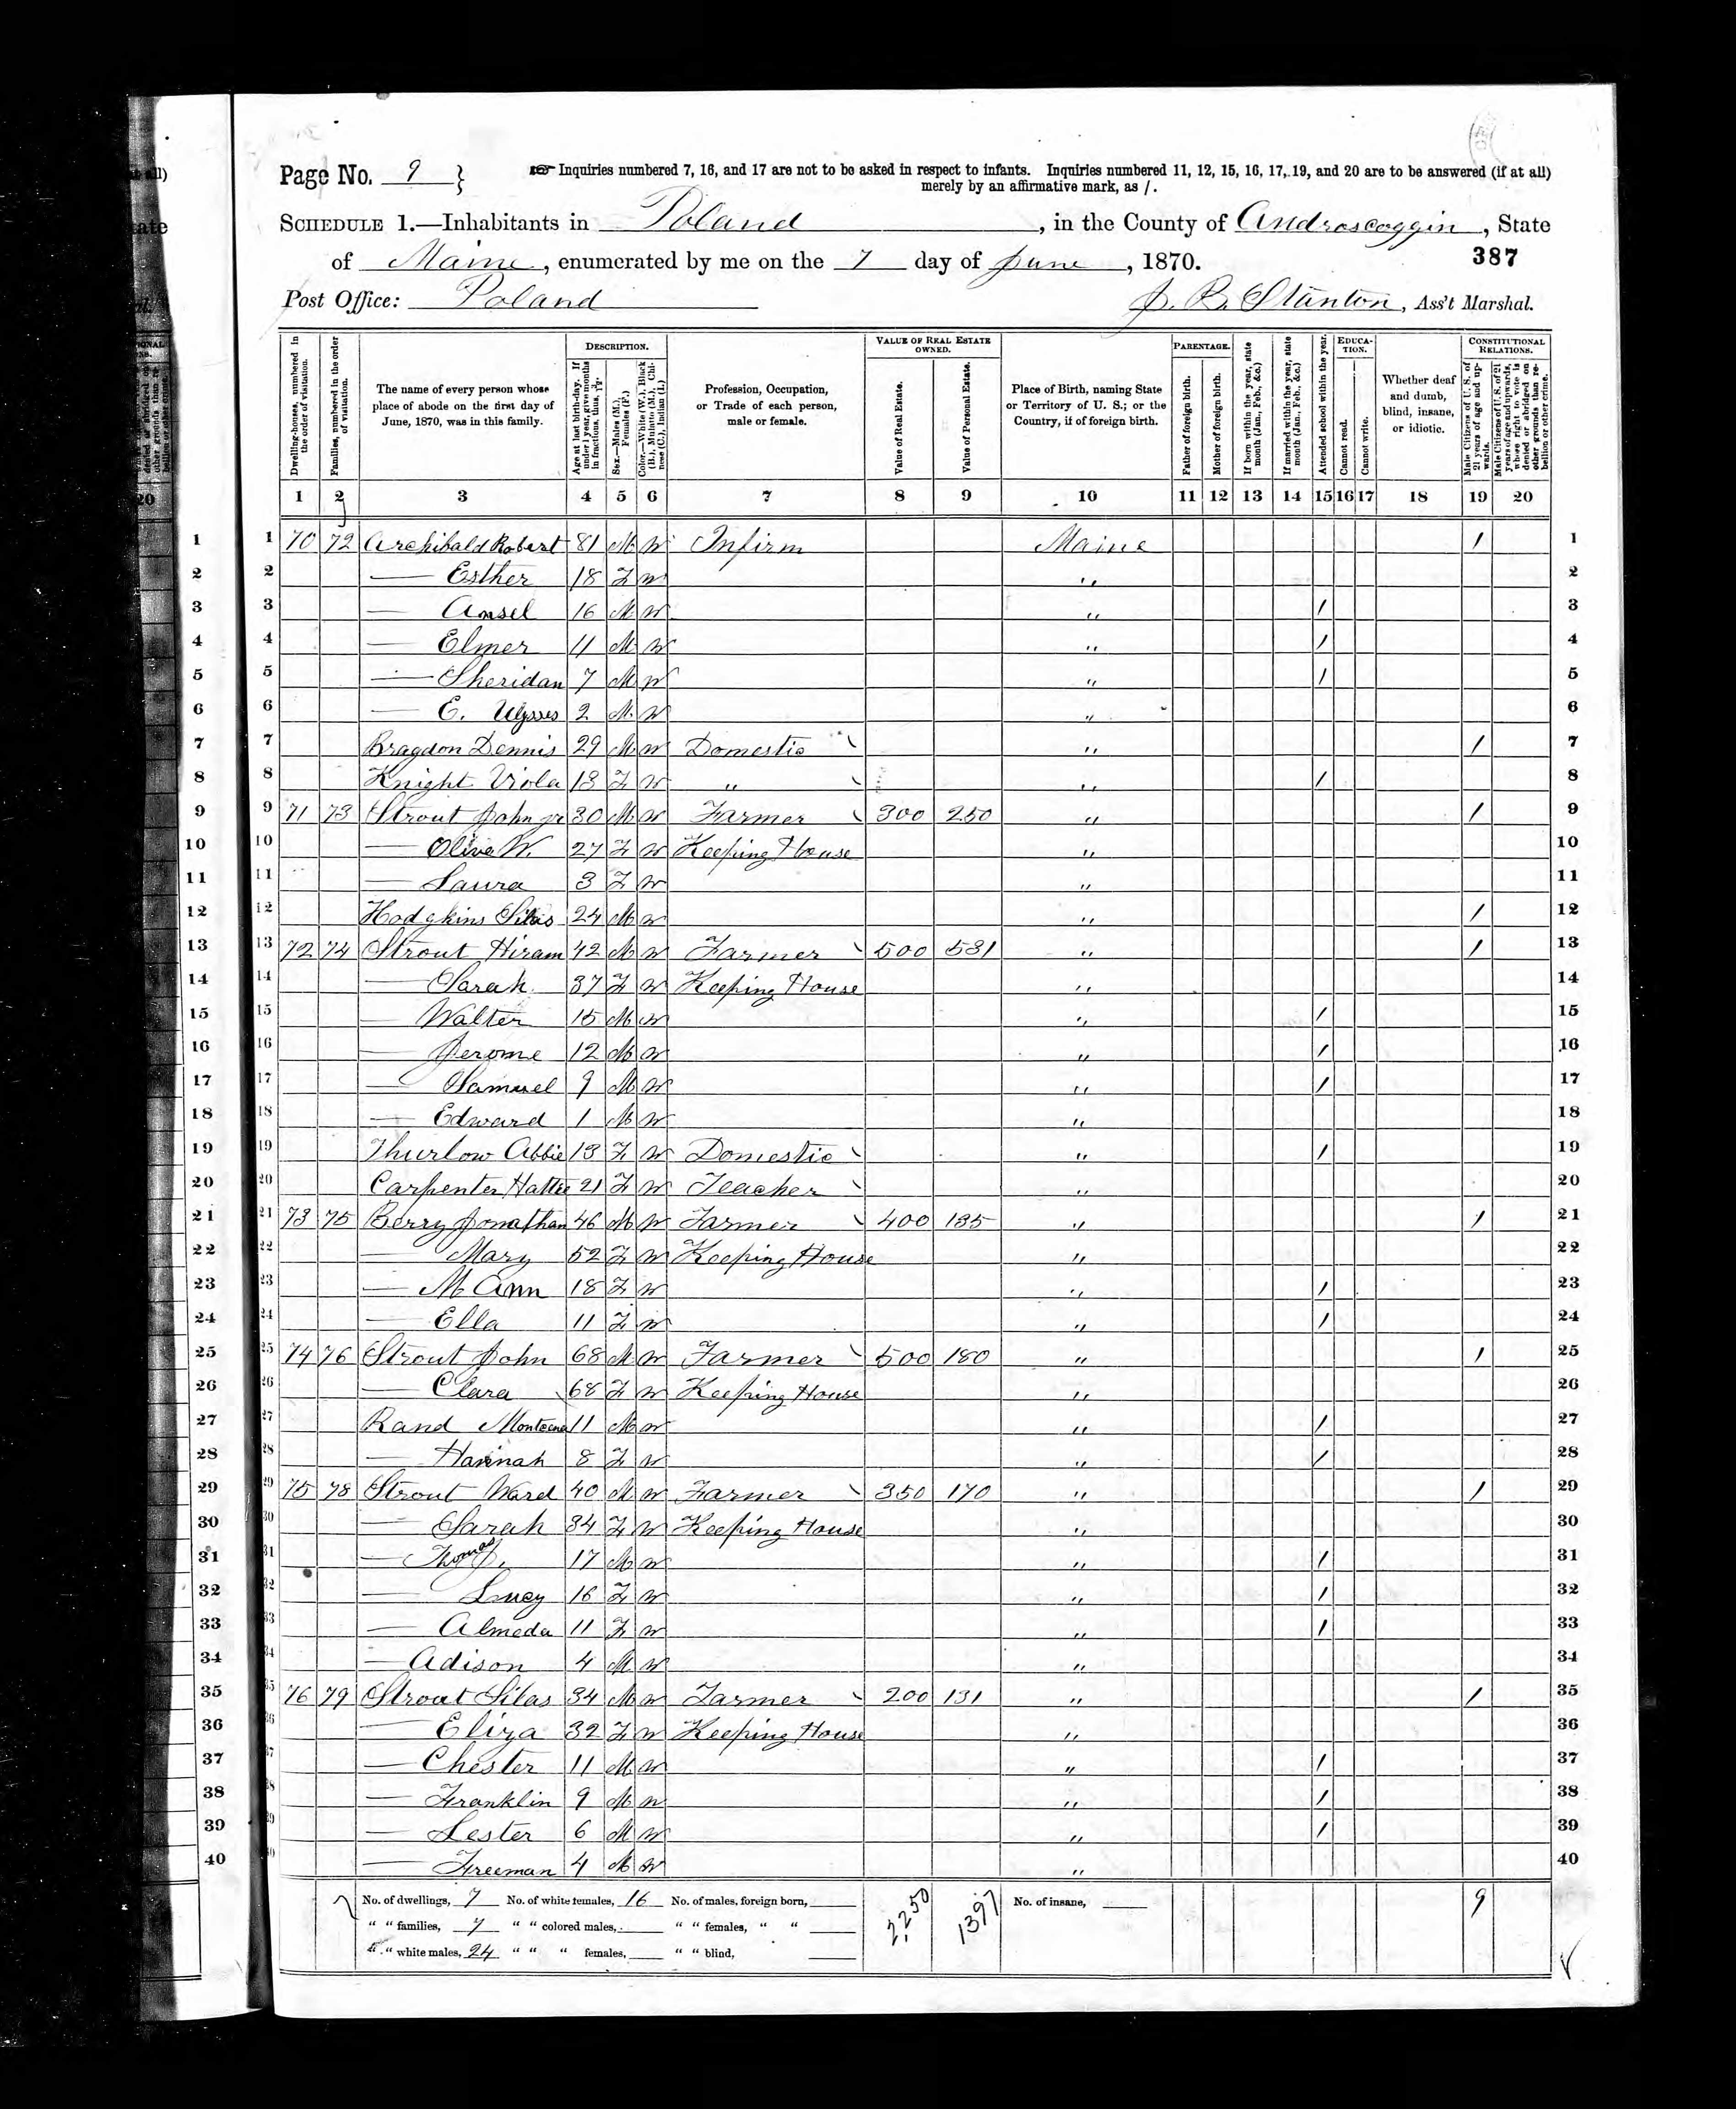 Page No. 9 } Inquiries numbered 7, 16, and 17 are not to be asked in respect to infants. Inquiries numbered 11, 12, 15, 16, 17, 19, and 20 are to be answered (if at all)
merely by an affirmative mark, as /.
SCHEDULE 1.—Inhabitants in Poland, in the County of Androscoggin, State
of Maine, enumerated by me on the 7 day of June, 1870. 387
Post Office: Poland J. B. Stanton, Ass't Marshal.
Dwelling-houses, numbered in the order of visitation.
Families, numbered in the order of visitation.
The name of every person whose place of abode on the first day of June, 1870, was in this family.
DESCRIPTION.
Age at last birth-day. If under 1 year, give months in fractions, thus, 3/12
Sex.—Males (M.), Females (F.)
Color.—White (W.), Black (B.), Mulatto (M.), Chinese (C.), Indian (I.)
Profession, Occupation, or Trade of each person, male or female.
VALUE OF REAL ESTATE OWNED.
Value of Real Estate.
Value of Personal Estate.
Place of Birth, naming State or Territory of U. S.; or the Country, if of foreign birth.
PARENTAGE.
Father of foreign birth.
Mother of foreign birth.
If born within the year, state month (Jan., Feb., &c.)
If married within the year, state month (Jan., Feb., &c.)
Attended school within the year.
EDUCATION.
Cannot read.
Cannot write.
Whether deaf and dumb, blind, insane, or idiotic.
CONSTITUTIONAL RELATIONS.
Male Citizens of U. S. of 21 years of age and upwards.
Male Citizens of U. S. of 21 years of age and upwards, whose right to vote is denied or abridged on other grounds than rebellion or other crime.
1 2 3 4 5 6 7 8 9 10 11 12 13 14 15 16 17 18 19 20
1 70 72 Archibald Robert 81 M W Infirm Maine / 1
2 — Esther 18 F W " 2
3 — Ansel 16 M W " / 3
4 — Elmer 11 M W " / 4
5 — Sheridan 7 M W " / 5
6 — E. Ulysses 2 M W " 6
7 Bragdon Dennis 29 M W Domestic " / 7
8 Knight Viola 13 F W " " / 8
9 71 73 Strout John jr 30 M W Farmer 300 250 " / 9
10 — Olive W. 27 F W Keeping House " 10
11 — Laura 3 F W " 11
12 Hodgkins Silas 24 M W " / 12
13 72 74 Strout Hiram 42 M W Farmer 500 531 " / 13
14 — Sarah 37 F W Keeping House " 14
15 — Walter 15 M W " / 15
16 — Jerome 12 M W " / 16
17 — Samuel 9 M W " / 17
18 — Edward 1 M W " 18
19 Thurlow Abbie 13 F W Domestic " / 19
20 Carpenter Hattie 21 F W Teacher " 20
21 73 75 Berry Jonathan 46 M W Farmer 400 135 " / 21
22 — Mary 52 F W Keeping House " 22
23 — M Ann 18 F W " / 23
24 — Ella 11 F W " / 24
25 74 76 Strout John 68 M W Farmer 500 180 " / 25
26 — Clara 68 F W Keeping House " 26
27 Rand 11 M W " / 27
28 — Hannah 8 F W " / 28
29 75 78 Strout Ward 40 M W Farmer 350 170 " / 29
30 — Sarah 34 F W Keeping House " 30
31 — Thomas J. 17 M W " / 31
32 — Lucy 16 F W " / 32
33 — Almeda 11 F W " / 33
34 — Adison 4 M W " 34
35 76 79 Strout Silas 34 M W Farmer 200 131 " / 35
36 — Eliza 32 F W Keeping House " 36
37 — Chester 11 M W " / 37
38 — Franklin 9 M W " / 38
39 — Lester 6 M W " / 39
40 — Freeman 4 M W " 40
No. of dwellings, 7 No. of white females, 16 No. of males, foreign born, 2250 1397 No. of insane, 9
" " families, 7 " " colored males, " " females, " "
" " white males, 24 " " " females, " " blind,